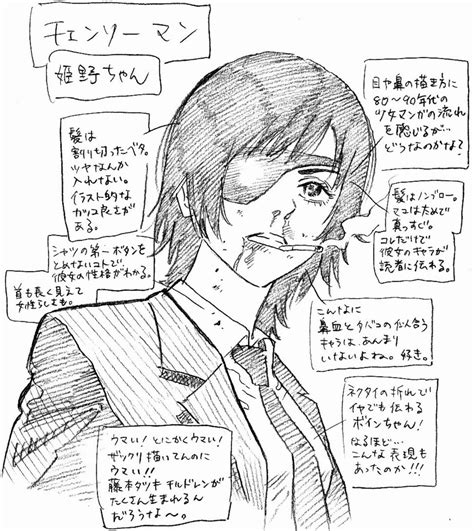 チェンソーマン
姫野ちゃん
髪は
割り切ったベタ。
ツヤなんか
入れない。
イラスト的な
カッコ良さが
ある。
シャツの第一ボタンを
とめないコトで、
彼女の性格がわかる。
首も長く見えて
女性らしさも。
目や鼻の描き方に
80〜90年代の
少女マンガの流れ
を感じるが…
どうなのかな?
髪はノンブロー。
マユは太めで
真っすぐ。
コレだけで
彼女のキャラが
読者に伝わる。
こんなに
鼻血とタバコの似合う
キャラは、あんまり
いないよね。好き。
ネクタイの折れで
イヤでも伝わる
ボインちゃん!
なるほど…
こんな表現も
あったのか!!!
ウマい!とにかくウマい!
ザックリ描いてんのに
ウマい!!
藤本タツキチルドレンが
たくさん生まれるん
だろうな〜。